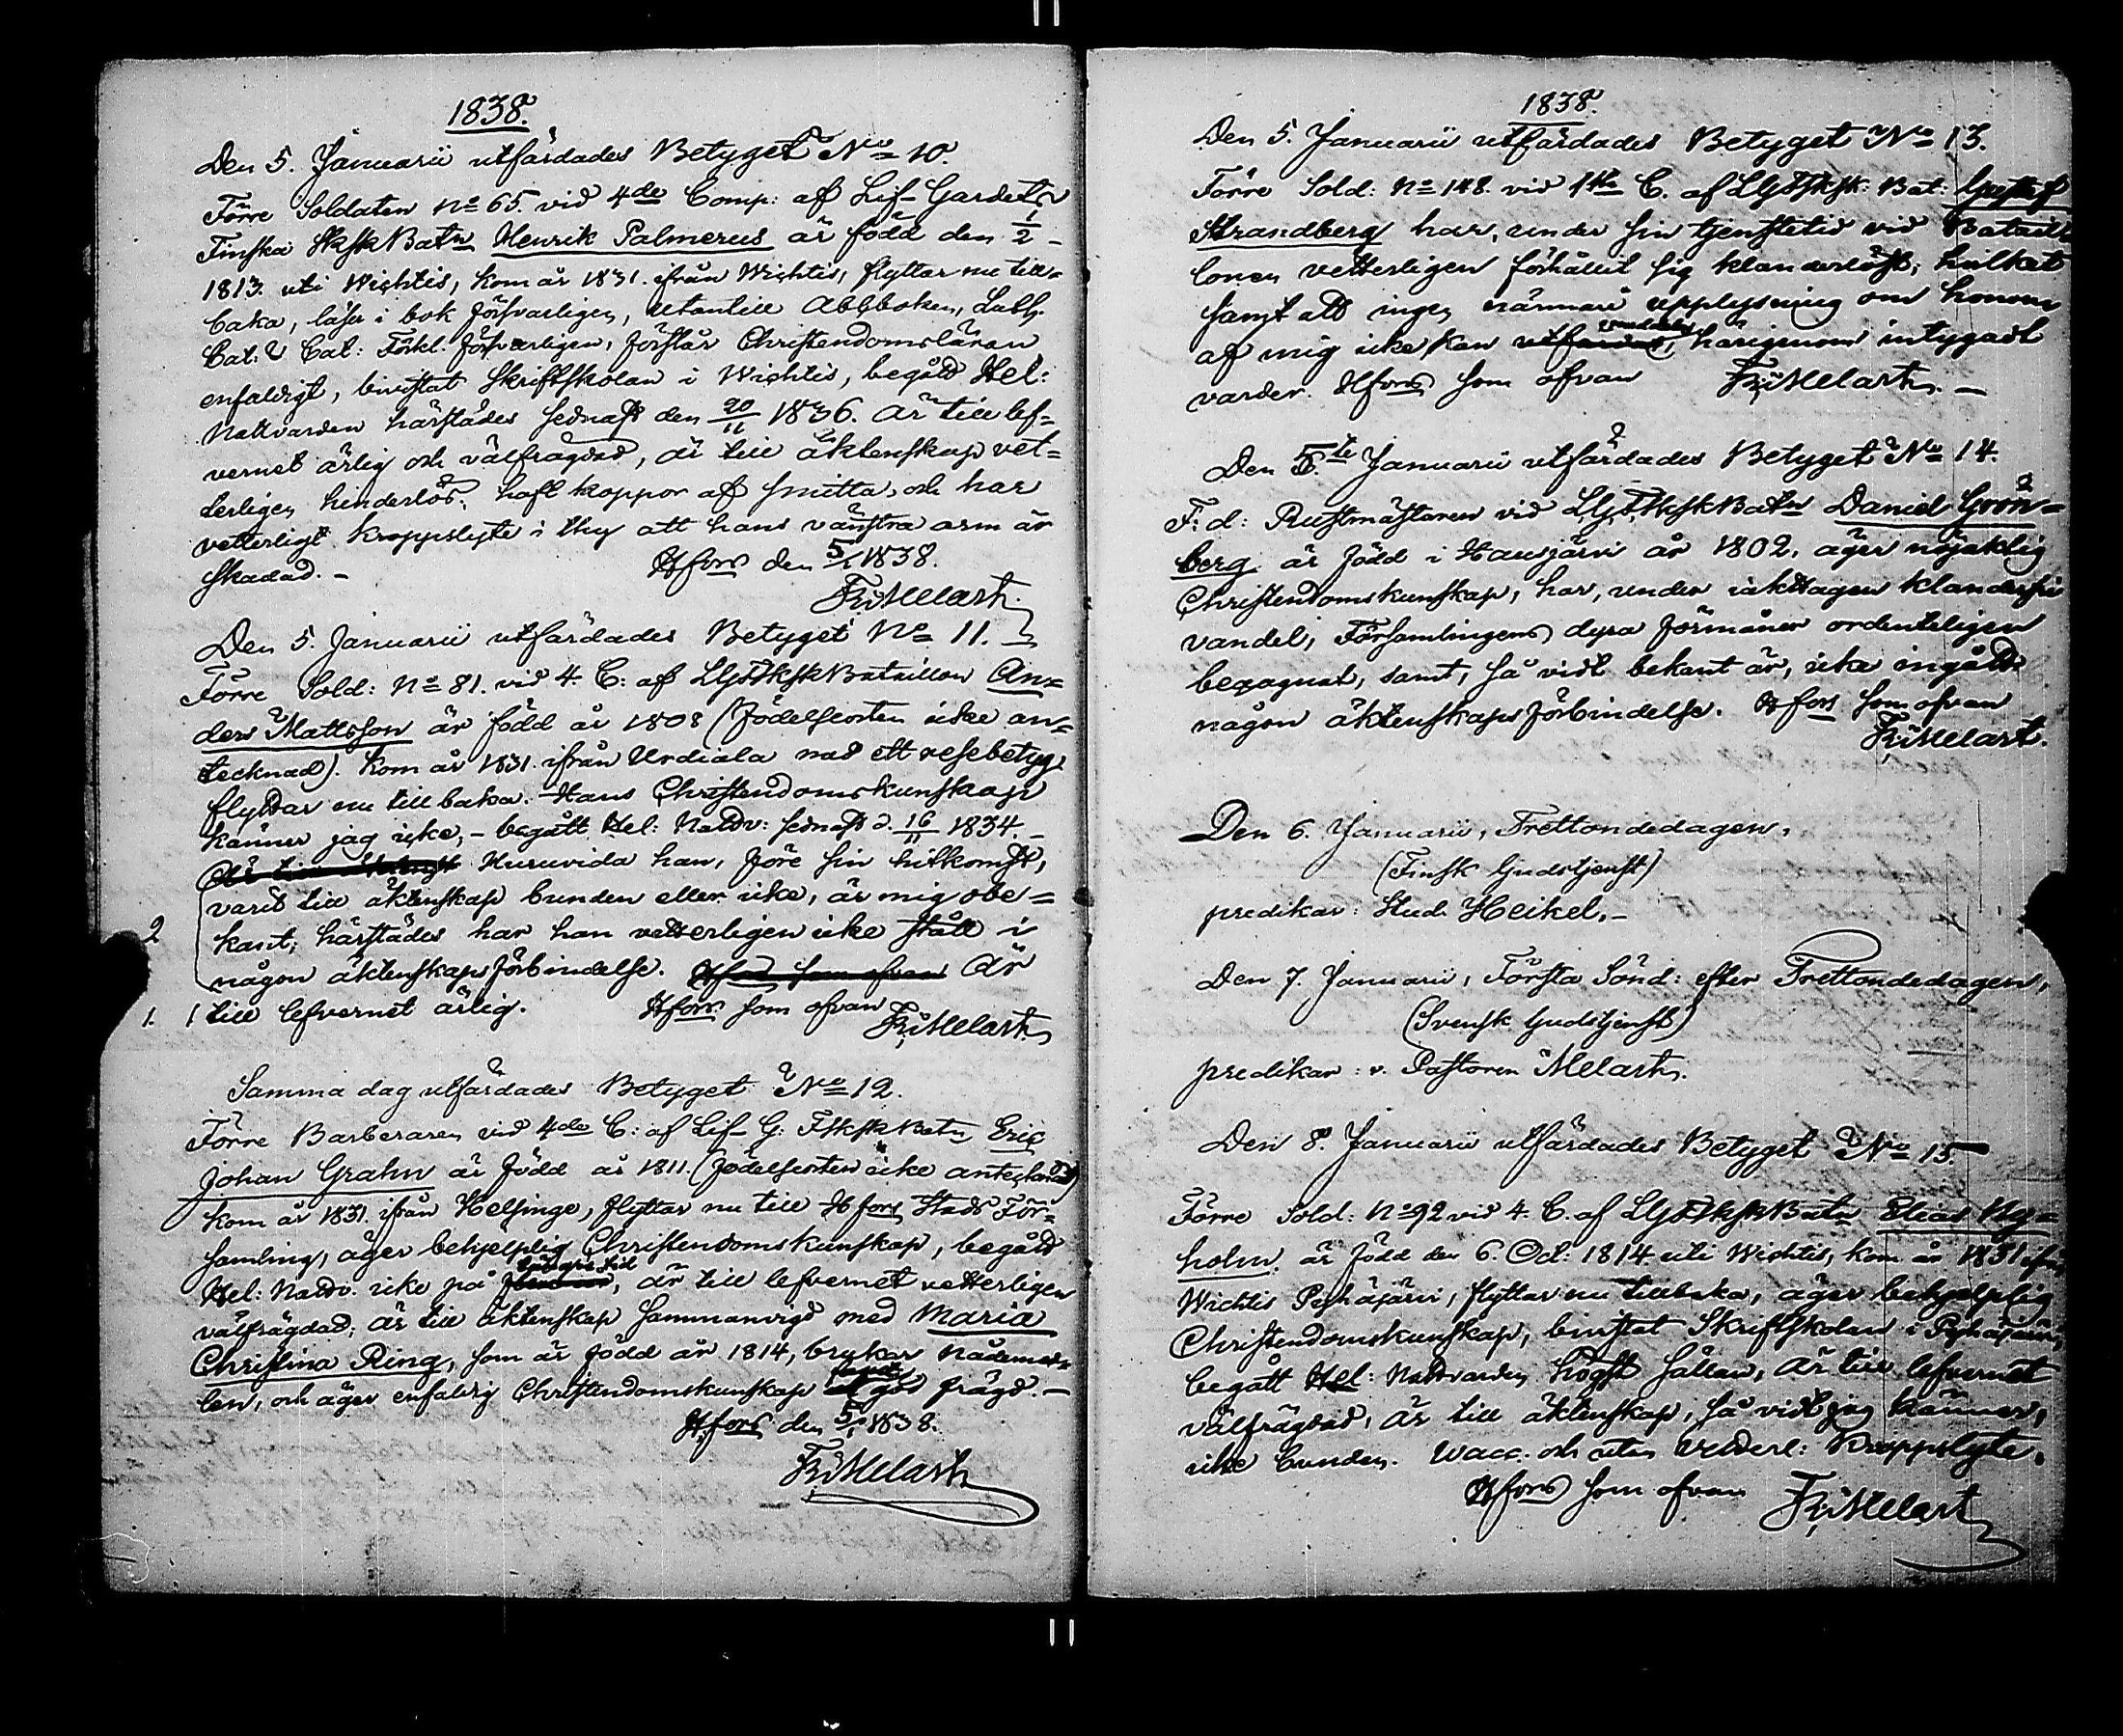 1838.
Den 5. Januarii utfärdades Betyget No 10.
Förre Soldaten No 65. vid 4de Comp: af Lif-Gardets
Finska SkSkBatn Henrik Palmerus är född den 1/2
1813. uti Wichtis, kom år 1831. ifrån Wichtis, flyttar nu till-
baka, läser i bok försvarligen, utantill Abboken, Luth.
Cat: & Cat: Förkl. försvarligen, förstår Christendomsläran
enfaldigt, bivistat Skriftskolan i Wichtis, begått Hel:
Nattvarden härstädes sednast den 20/11 1836. är till lef-
vernet ärlig och välfrägdad, är till äktenskap vet-
terligen hinderlös, haft koppor af smitta, och har
vetterligt kroppslyte i thy att hans vänstra arm är
skadad. - Hfors den 5/1 1838.
FrMelart.
Den 5. Januarii utfärdades Betyget No 11.
Förre Sold: No 81. vid 4. C: af LGFSkSkBataillon An-
ders Mattsson är född år 1808 (födelseorten icke an-
tecknad). Kom år 1831. ifrån Urdiala med ett resebetyg,
flyttar nu tillbaka. Hans Christendomskunskap
känner jag icke, - begått Hel: Nattv: sednast d. 16/11 1834. -
Är till äktensk Huruvida han, före sin hitkomst,
varit till äktenskap bunden eller icke, är mig obe-
2 kant; härstädes har han vetterligen icke stått i
någon äktenskapsförbindelse. Hfors som ofvan Är
1. till lefvernet ärlig. Hfors som ofvan
FrMelart
Samma dag utfärdades Betyget No 12.
Förre Barberaren vid 4de C: af Lif-G: FSkSkBatn Eric
Johan Grahn är född år 1811. (födelseorten icke antecknad)
kom år 1831. ifrån Helsinge, flyttar nu till Hfors Stads För-
samling, äger behjelplig Christendomskunskap, begått
längre tid
Hel: Nattv. icke på, är till lefvernet vetterligen
välfrägdad; är till äktenskap sammanvigd med Maria
Christina Ring, som är född år 1814, brukar nådemed-
len, och äger enfaldig Christendomskunskap god frägd. -
Hfors den 5/1 1838.
FrMelart
1838.
Den 5. Januarii utfärdades Betyget No 13.
Förre Sold: No 148. vid 1sta C. af LGFSkSk: Bat: Gustaf
Strandberg har, under sin tjenstetid vid Batail-
lonen vetterligen förhållit sig klanderlöst; hvilket
samt att ingen närmare upplysning om honom
meddelas
af mig icke kan utfärdas, härigenom intygadt
varder. Hfors som ofvan FrMelart. -
Den 5te Januarii utfärdades Betyget No 14.
F: d: Rustmästaren vid LGFSkSkBatn Daniel Grön-
berg är född i Hausjärvi år 1802, äger nöjaktig
Christendomskunskap, har, under iakttagen klanderfri
vandel, Församlingens dyra förmåner ordenteligen
begagnat, samt, så vidt bekant är, icke ingått
någon äktenskapsförbindelse. Hfors som ofvan
FrMelart.
Den 6. Januarii, Trettondedagen,
(Finsk Gudstjenst)
predikar: Stud. Heikel. -
Den 7. Januarii, Första Sönd: efter Trettondedagen,
(Svensk Gudstjenst)
predikar: v. Pastoren Melart.
Den 8. Januarii utfärdades Betyget No 15.
Förre Sold: No 92 vid 4. C. af LGFSkSkBatn Elias By-
holm, är född den 6. Oct: 1814 uti Wichtis, kom år 1831 ifrån
Wichtis Pyhäjärvi, flyttar nu tillbaka, äger behjelplig
Christendomskunskap, bivistat Skriftskolan i Pyhäjärvi,
begått Hel: Nattvarden högst sällan, är till lefvernet
välfrägdad, är till äktenskap, så vidt jag känner,
icke bunden. Wacc. och utan vetterl: kroppslyte.
Hfors som ofvan FrMelart